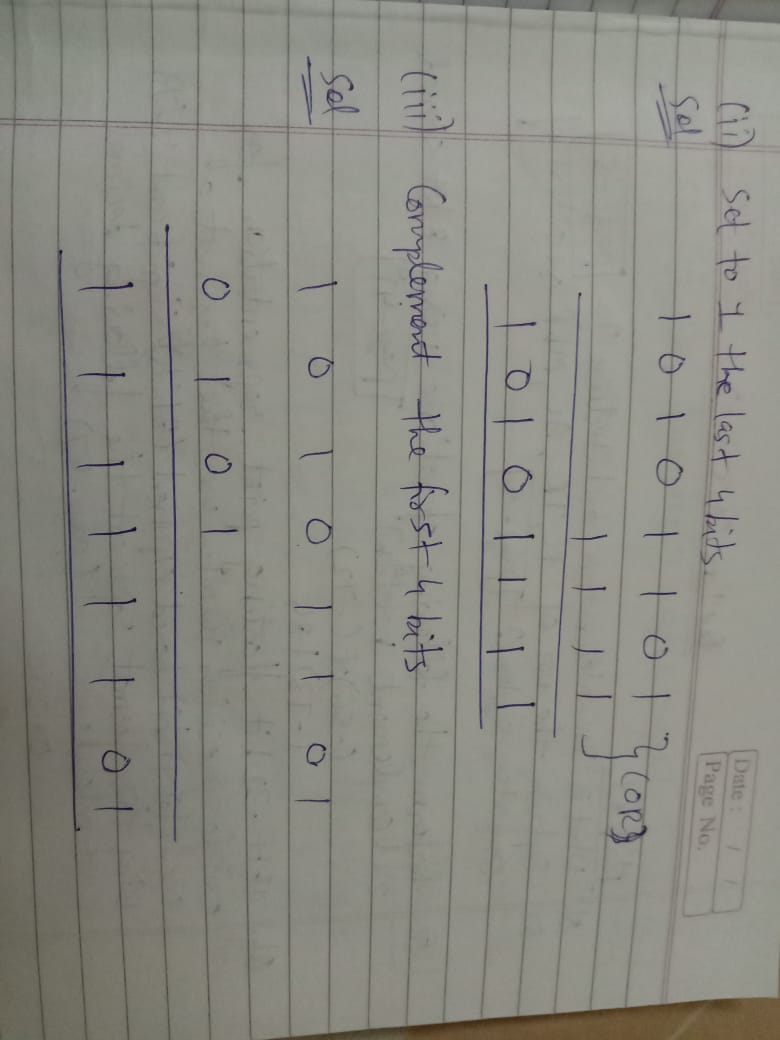 Date : / /
Page No.
(ii) Set to 1 the last 4 bits.
Sol
1 0 1 0 1 1 0 1 } (OR)
1 1 1 1
1 0 1 0 1 1 1 1
(iii) Complement the first 4 bits
Sol
1 0 1 0 1 1 0 1
0 1 0 1
1 1 1 1 1 1 0 1